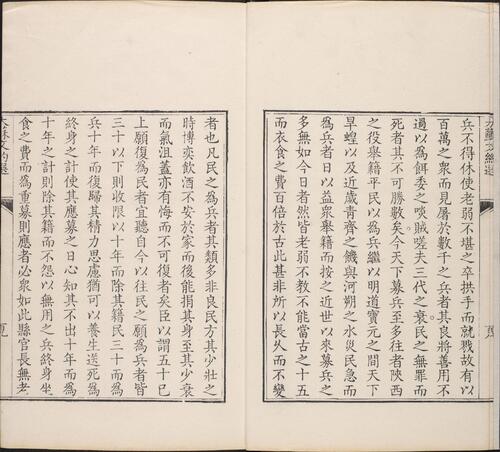 兵不得休使老弱不堪之卒拱手而就戮故有以
百萬之衆而見屠於數千之兵者其良將善用不
過以為餌委之啖賊嗟夫三代之衰民之無罪而
死者其不可勝數矣今天下募兵至多往者陝西
之役舉籍平民以為兵繼以明道寶元之間天下
旱蝗以及近歲青齊之饑與河朔之水災民急而
為兵者日以益衆舉籍而按之近世以來募兵之
多無如今日者然皆老弱不教不能當古之十五
而衣食之費百倍於古此甚非所以長久而不變
者也凡民之為兵者其類多非良民方其少壯之
時博奕飲酒不安於家而後能捐其身至其少衰
而氣沮蓋亦有悔而不可復者矣臣以謂五十已
上願復為民者宜聽自今以往民之願為兵者皆
三十以下則收限以十年而除其籍民三十而為
兵十年而復歸其精力思慮猶可以養生送死為
終身之計使其應募之日心知其不出十年而為
十年之計則除其籍而不怨以無用之兵終身坐
食之費而為重募則應者必衆如此縣官長無老